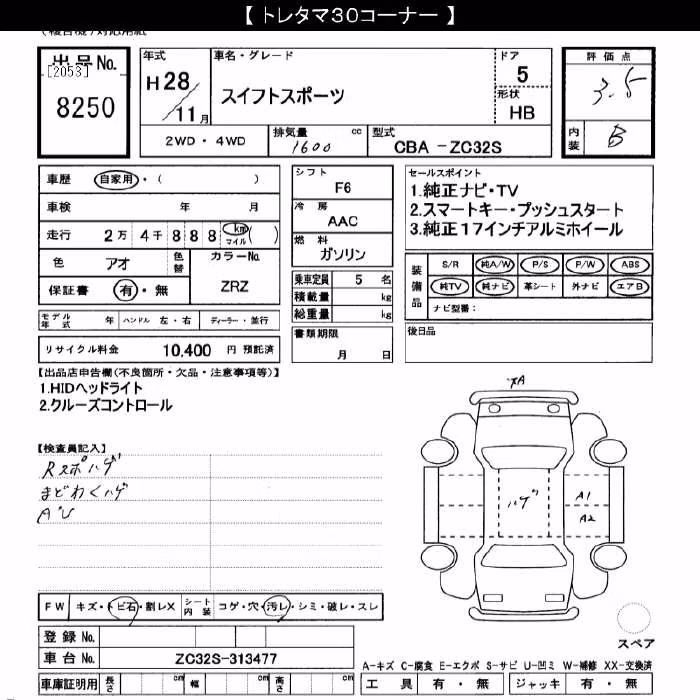 【 トレタマ30コーナー 】
出品No.
[2053]
8250
年式
H28/11月
車名・グレード
スイフトスポーツ
ドア
5
形状
HB
評価点
3.5
内装
B
2WD・4WD
排気量 1600 cc
型式 CBA-ZC32S
車歴 自家用・( )
車検 年 月
走行 2万4千888 km マイル ( )
色 アオ 色替
カラーNo. ZRZ
保証書 有・無
シフト
F6
冷房
AAC
燃料
ガソリン
乗車定員 5 名
積載量 kg
総重量 kg
書類期限
月 日
セールスポイント
1.純正ナビ・TV
2.スマートキー・プッシュスタート
3.純正17インチアルミホイール
装備品
S/R 純A/W P/S P/W ABS
純TV 純ナビ 革シート 外ナビ エアB
ナビ型番:
後日品
モデル年式 年 ハンドル 左・右 ディーラー・並行
リサイクル料金 10,400 円 預託済
【出品店申告欄(不良箇所・欠品・注意事項等)】
1.HIDヘッドライト
2.クルーズコントロール
【検査員記入】
Rスポハゲ
まどわくハゲ
AU
A
ハゲ
A1
A2
スペア
FW キズ・トビ石・割レX シート内装 コゲ・穴・汚レ・シミ・破レ・スレ
登録No.
車台No. ZC32S-313477
車庫証明用 長さ cm 幅 cm 高さ cm
A-キズ C-腐食 E-エクボ S-サビ U-凹ミ W-補修 XX-交換済
工具 有・無 ジャッキ 有・無